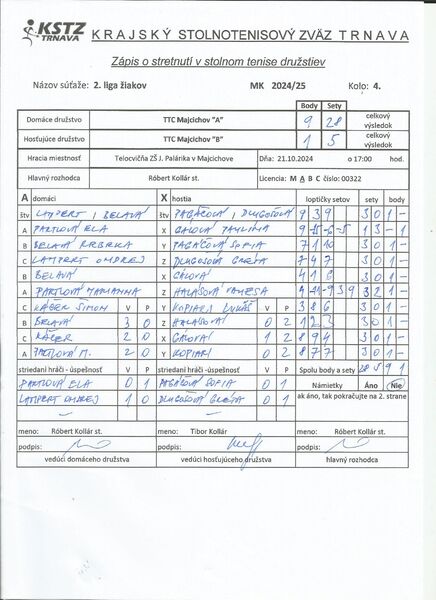 KSTZ TRNAVA
KRAJSKÝ STOLNOTENISOVÝ ZVÄZ TRNAVA
Zápis o stretnutí v stolnom tenise družstiev
Názov súťaže: 2. liga žiakov MK 2024/25 Kolo: 4.
Body Sety
Domáce družstvo TTC Majcichov "A" 9 28 celkový výsledok
Hosťujúce družstvo TTC Majcichov "B" 1 5 celkový výsledok
Hracia miestnosť Telocvičňa ZŠ J. Palárika v Majcichove Dňa: 21.10.2024 o 17:00 hod.
Hlavný rozhodca Róbert Kollár st. Licencia: M A B C číslo: 00322
A domáci X hostia loptičky setov sety body
štv LAMPERT, BELAVÁ štv PAGÁČOVÁ, DLUGOŠOVÁ 9 3 9 3 0 1 -
A PARTLOVÁ ELA X CÁLOVÁ PAULINA 9 -5 -6 -5 1 3 - 1
B BELAVÁ BARBRKA Y PAGÁČOVÁ SOFIA 7 1 10 3 0 1 -
C LAMPERT ONDREJ Z DLUGOŠOVÁ GRETA 7 4 7 3 0 1 -
B BELAVÁ X CÁLOVÁ 4 1 6 3 0 1 -
A PARTLOVÁ MARIANNA Z HALASOVÁ VANESA 4 -11 -9 3 9 3 2 1 -
C KÁČER ŠIMON V P Y KOPIARI LUKÁŠ V P 3 8 6 3 0 1 -
B BELAVÁ 3 0 Z HALASOVÁ 0 2 1 2 3 3 0 1 -
C KÁČER 2 0 X CÁLOVÁ 1 2 8 9 4 3 0 1 -
A PARTLOVÁ M. 2 0 Y KOPIARI 0 2 8 7 7 3 0 1 -
striedaní hráči - úspešnosť V P striedaní hráči - úspešnosť V P Spolu body a sety 28 5 9 1
PARTLOVÁ ELA 0 1 PAGÁČOVÁ SOFIA 0 1 Námietky Áno Nie
LAMPERT ONDREJ 1 0 DLUGOŠOVÁ GRETA 0 1 ak áno, tak pokračujte na 2. strane
meno: Róbert Kollár st. meno: Tibor Kollár meno: Róbert Kollár st.
podpis: podpis: podpis:
vedúci domáceho družstva vedúci hosťujúceho družstva hlavný rozhodca